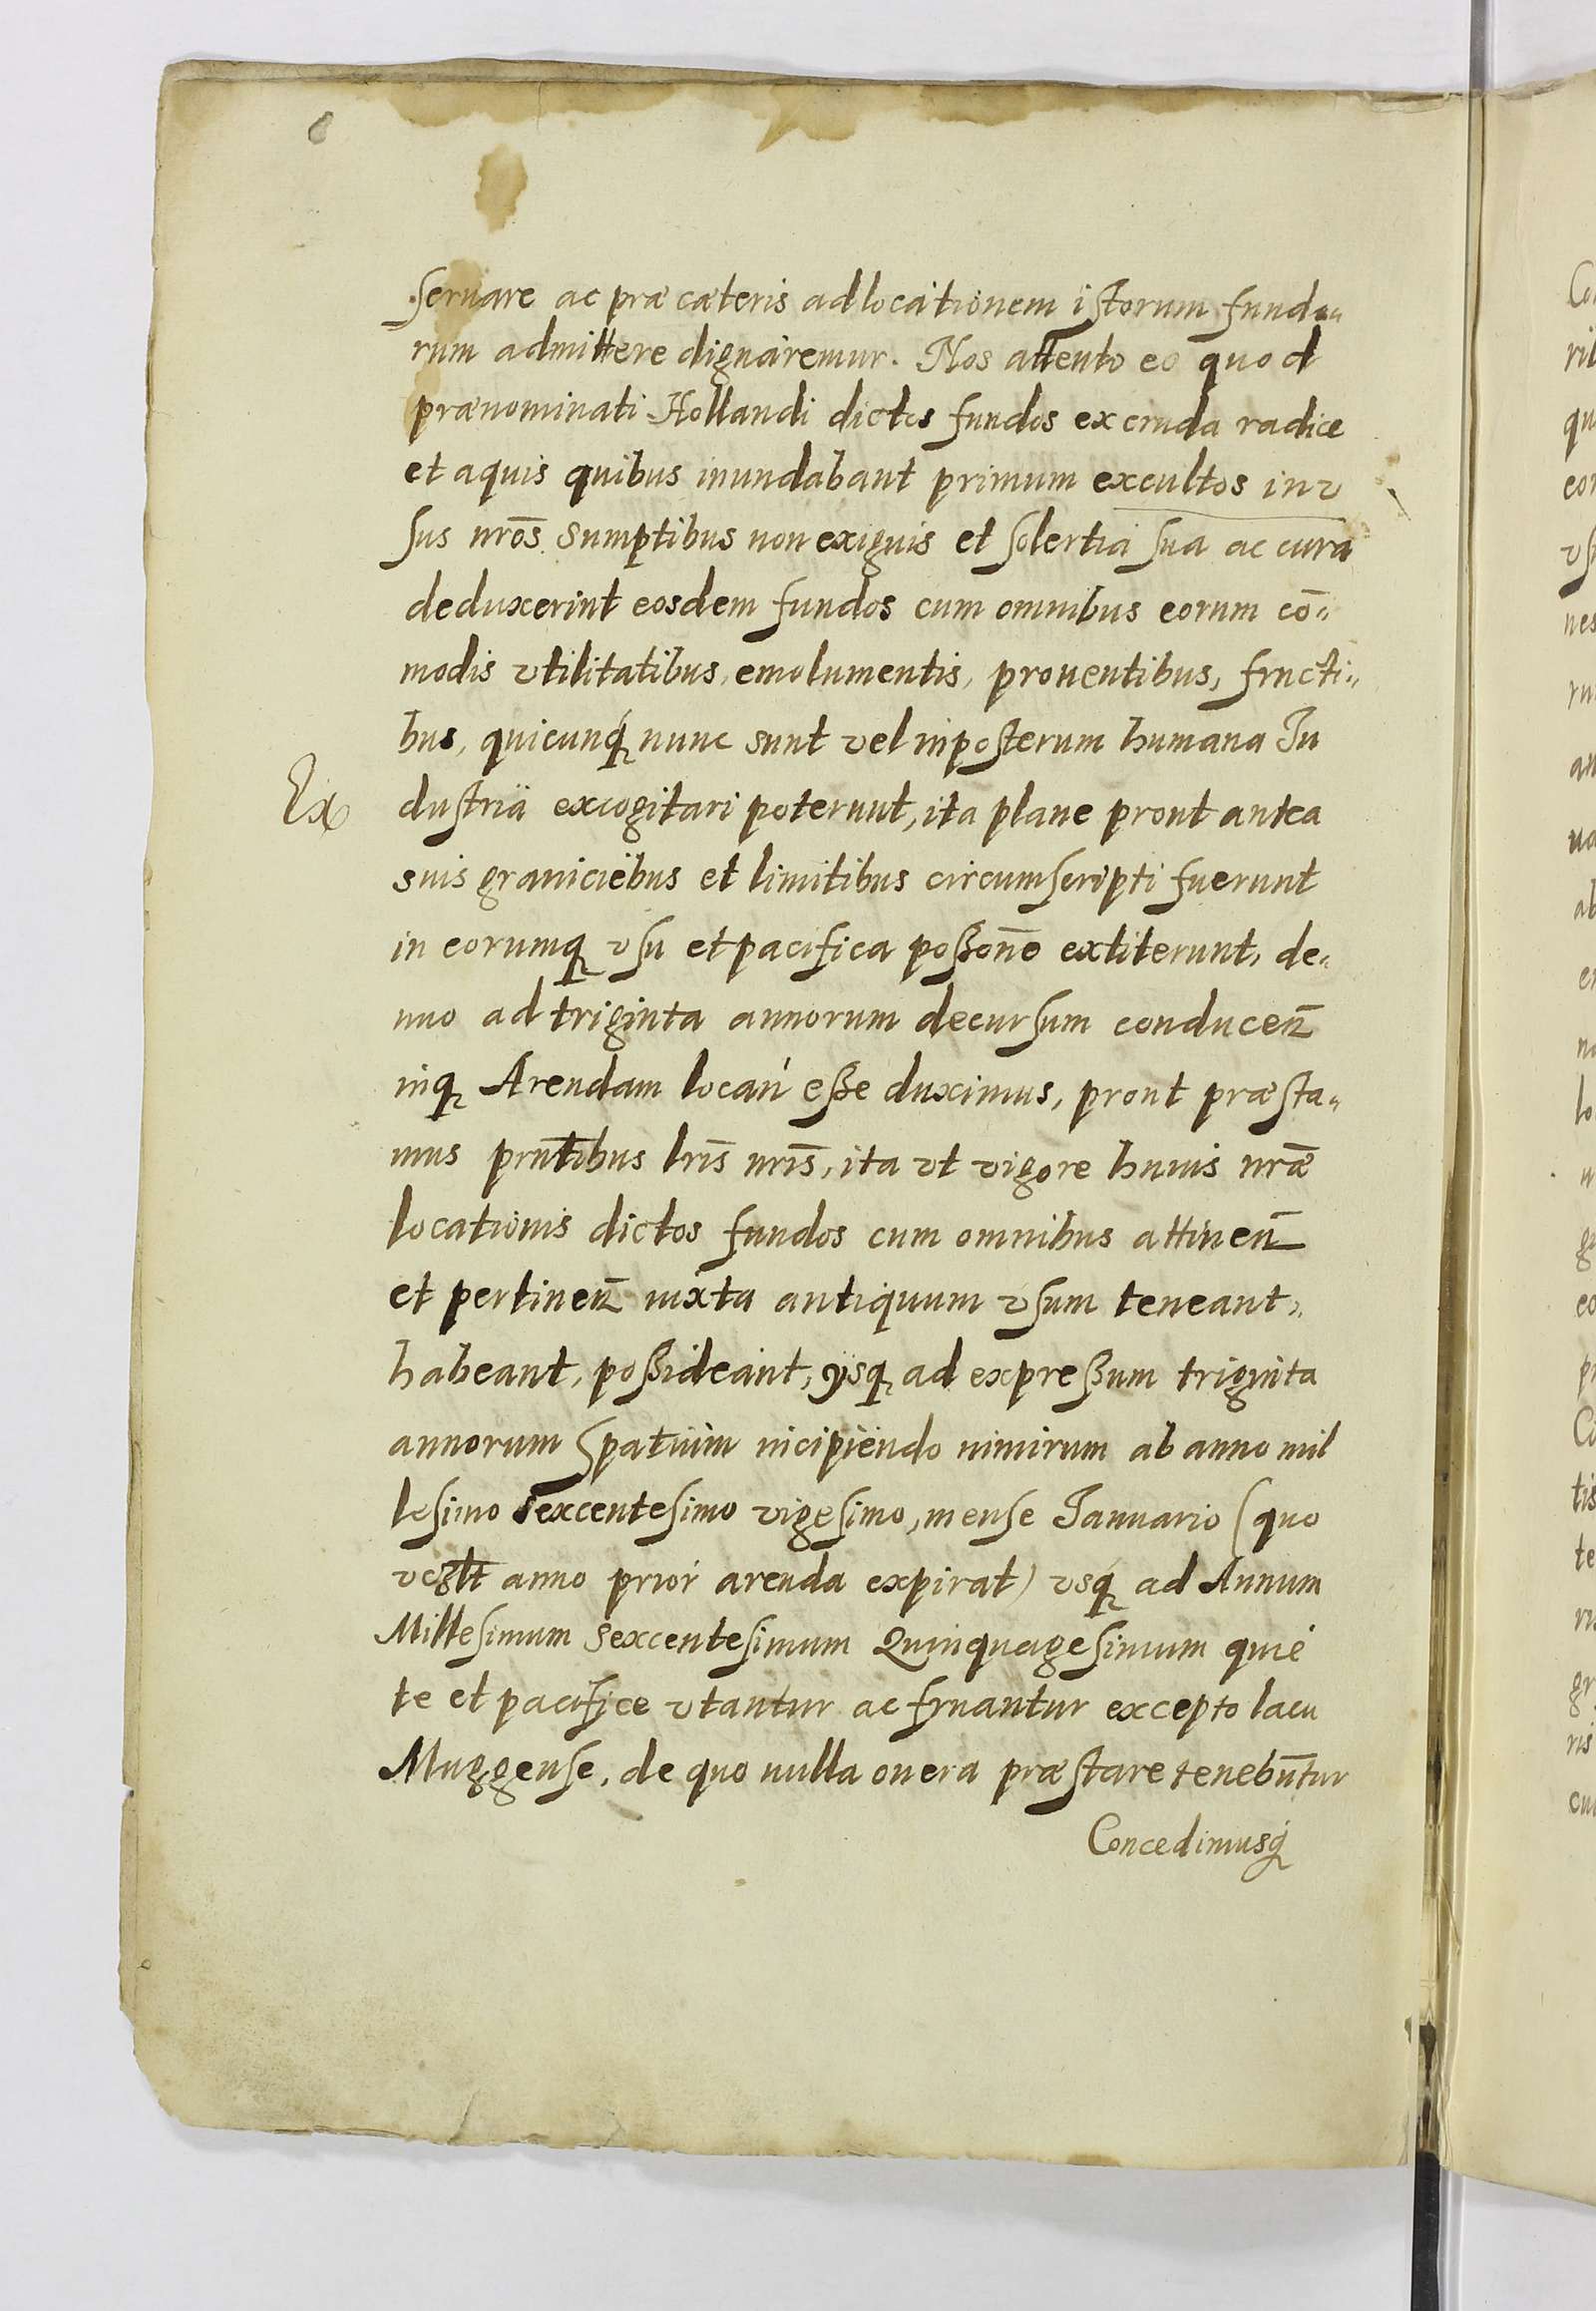 6
seruare ac præ cæteris ad locationem istorum fundo„
rum admittere dignaremur. Nos attento eo quod
prænominati Hollandi dictos fundos ex cruda radice
et aquis quibus inundabant primum excultos in v
sus nr̄os sumptibus non exiguis et solertia sua ac cura
deduxerint eosdem fundos cum omnibus eorum cō„
modis vtilitatibus, emolumentis, prouentibus, fructi„
bus, quicunq́ nunc sunt vel inposterum humana In
Ex dustria excogitari poterunt, ita plane prout antea
suis graniciebus et limitibus circumscripti fuerunt
in eorumq vsu et pacifica poßon̄e extiterunt, de„
nuo ad triginta annorum decursum conducen̄
inq Arendam locań eße duximus, prout præsta„
mus prn̄tibus lr̄is nr̄is, ita vt vigore huius nr̄æ
locationis dictos fundos cum omnibus attinen̄
et pertinen̄ iuxta antiquum vsum teneant,
habeant, poßideant, vsq ad expreßum triginta
annorum spatium incipiendo nimirum ab anno mil
lesimo sexcentesimo vigesimo, mense Ianuario (quo
anno prior arenda expirat) vsq́ ad Annum
Millesimum sexcentesimum Quinquagesimum quie
te et pacifice vtantur ac fruantur excepto lacu
Muggense, de quo nulla onera præstare tenebūtur
Concedimusq́